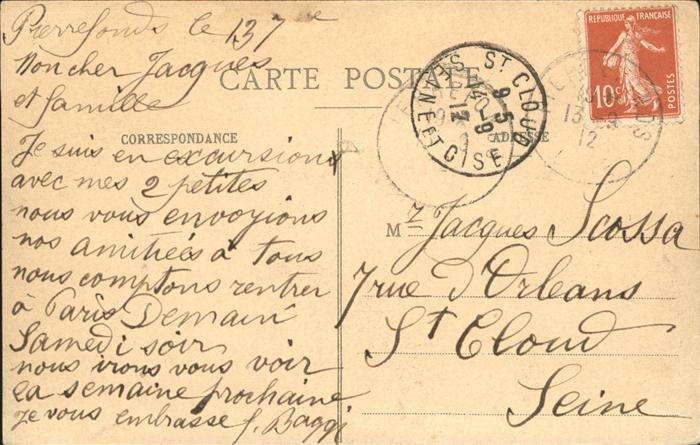 Pierrefonds le 13 7
Mon cher Jacques
et famille
CARTE POSTALE
CORRESPONDANCE
ADRESSE
Je suis en excursions
avec mes 2 petites
nous vous envoyions
nos amitiées à tous
nous comptons rentrer
à Paris Demain
Samedi soir
nous irons vous voir
la semaine prochaine
Je vous embrasse J. Baggi
Mr Jacques Scossa
7 rue d'Orleans
St Cloud
Seine
REPUBLIQUE FRANÇAISE
10c
POSTES
ST CLOUD
9-5
12
SEINE ET OISE
12